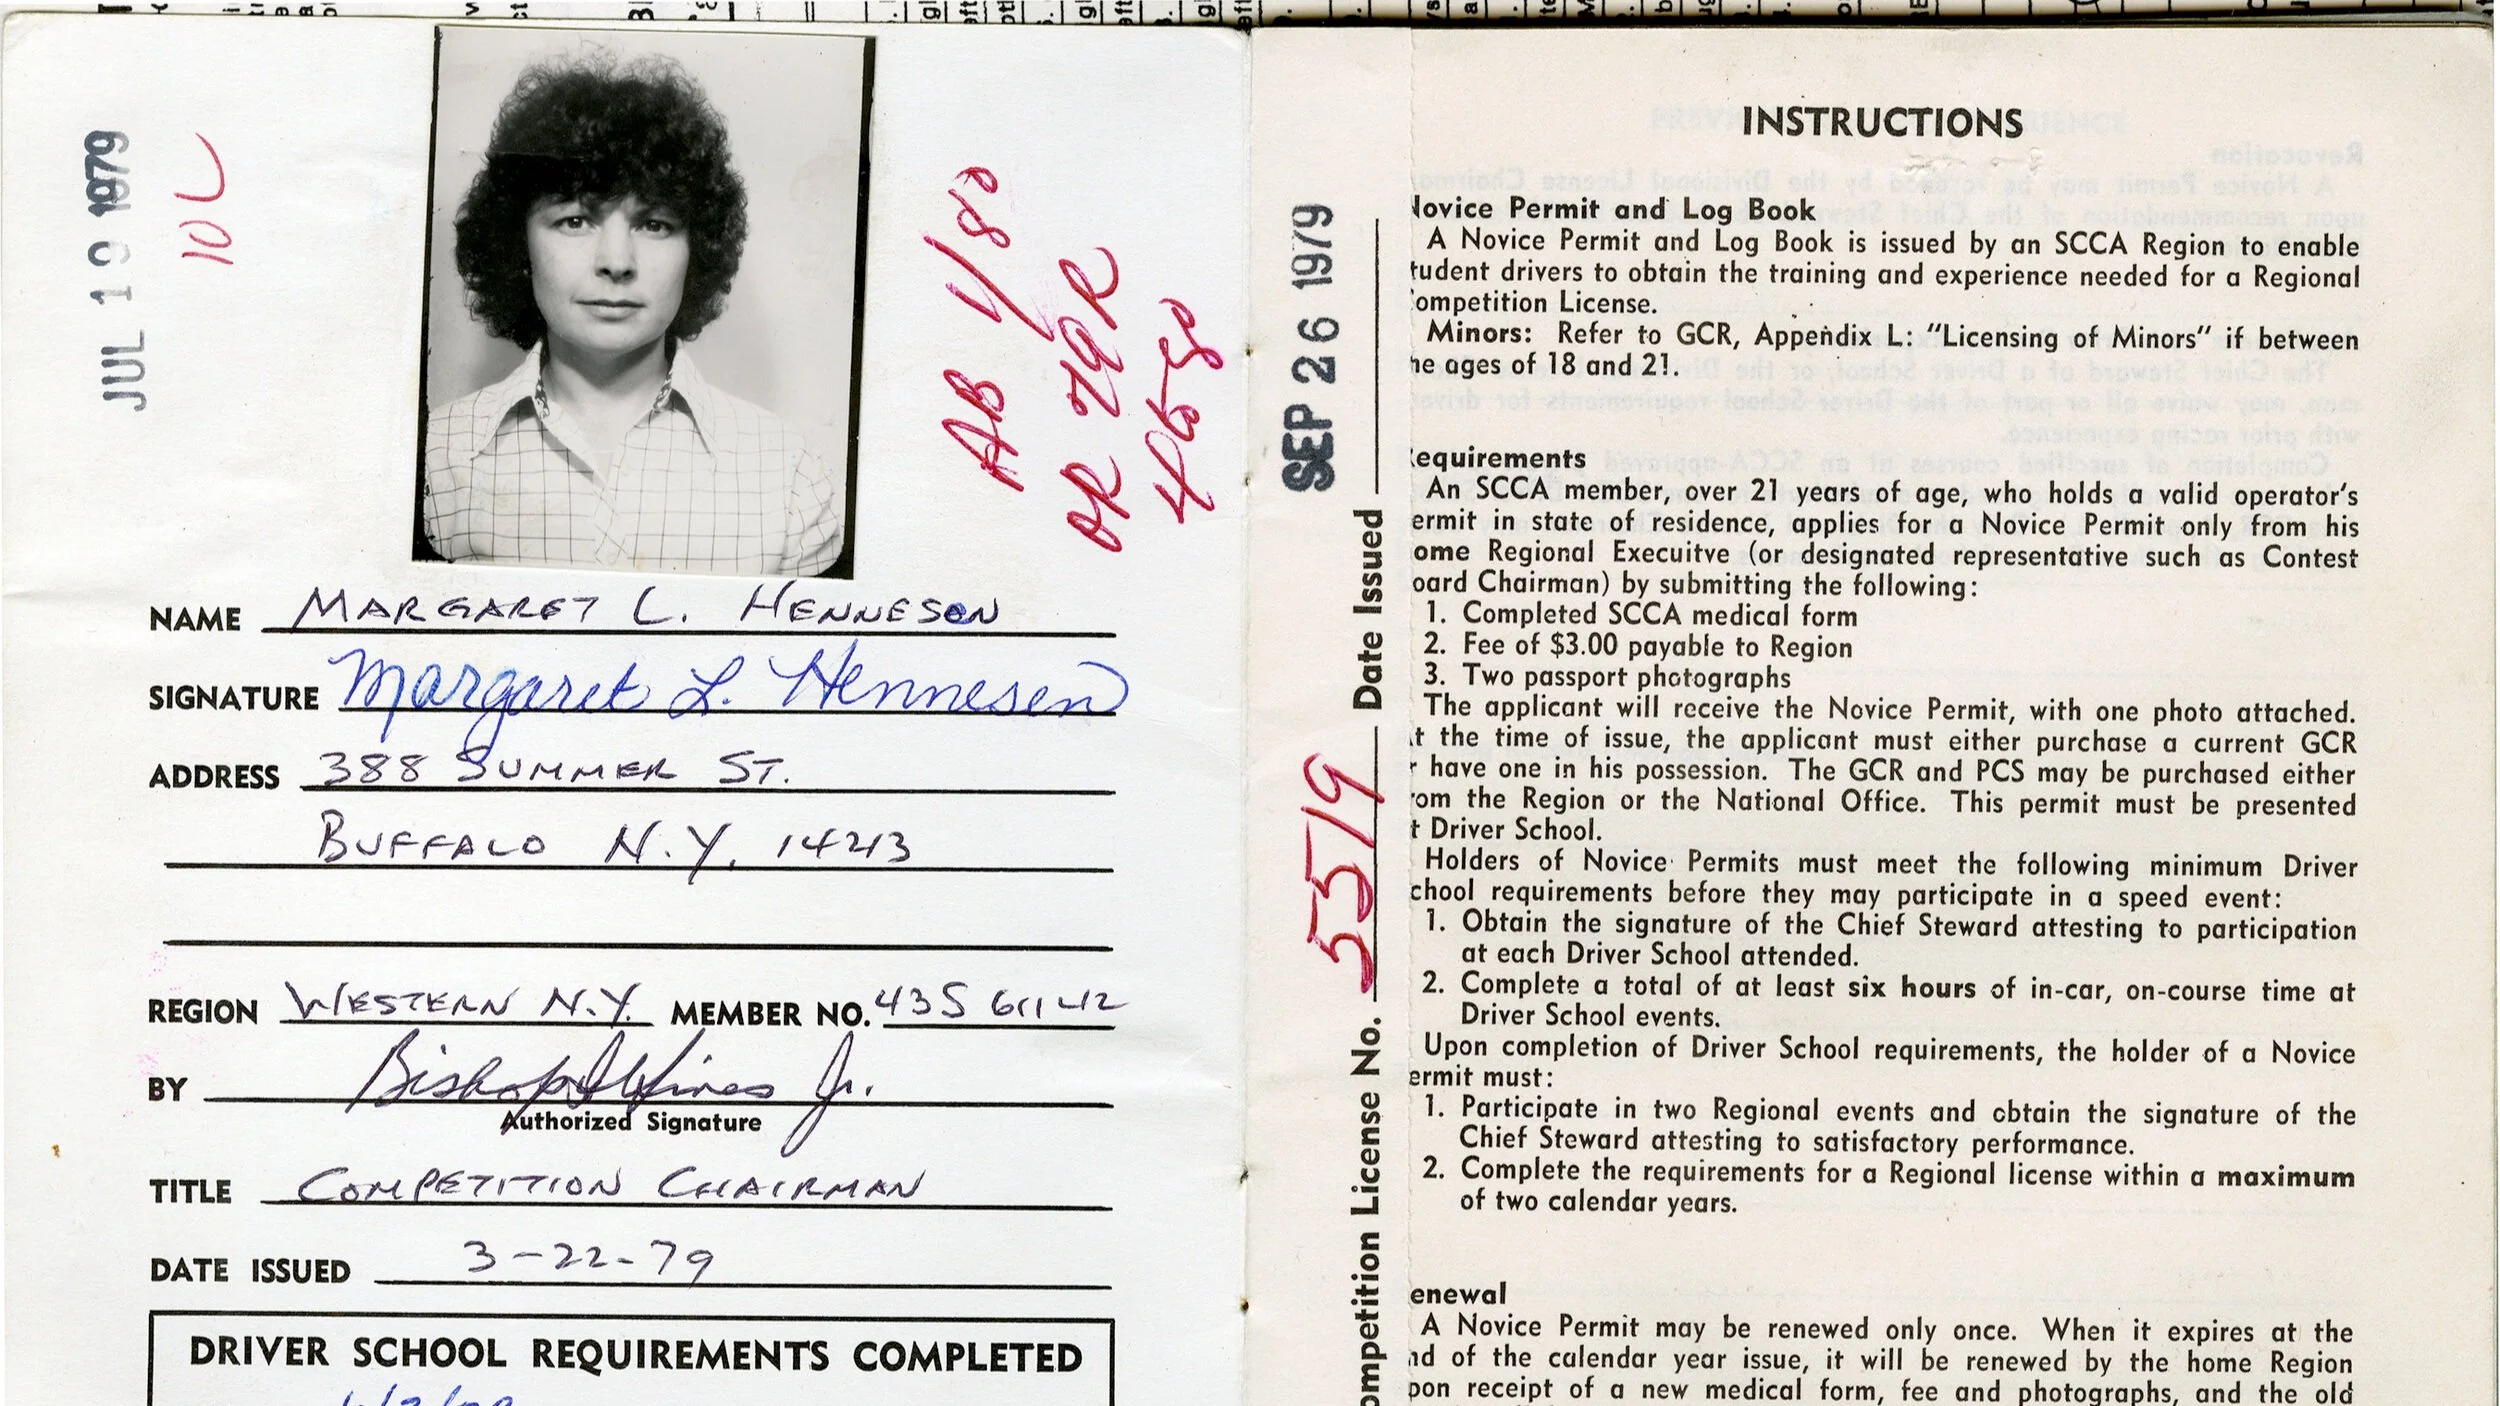 JUL 19 1979
10L
AB 1/80
OR 79R
NAME MARGARET L. HENNESEN
SIGNATURE Margaret L. Hennesen
ADDRESS 388 SUMMER ST.
BUFFALO N.Y. 14213
REGION WESTERN N.Y. MEMBER NO. 435 61142
BY Jr.
Authorized Signature
TITLE COMPETITION CHAIRMAN
DATE ISSUED 3-22-79
DRIVER SCHOOL REQUIREMENTS COMPLETED
SEP 26 1979
ompetition License No. 5519 Date Issued
INSTRUCTIONS
ovice Permit and Log Book
A Novice Permit and Log Book is issued by an SCCA Region to enable
tudent drivers to obtain the training and experience needed for a Regional
ompetition License.
Minors: Refer to GCR, Appendix L: "Licensing of Minors" if between
he ages of 18 and 21.
equirements
An SCCA member, over 21 years of age, who holds a valid operator's
ermit in state of residence, applies for a Novice Permit only from his
ome Regional Execuitve (or designated representative such as Contest
oard Chairman) by submitting the following:
1. Completed SCCA medical form
2. Fee of $3.00 payable to Region
3. Two passport photographs
The applicant will receive the Novice Permit, with one photo attached.
t the time of issue, the applicant must either purchase a current GCR
r have one in his possession. The GCR and PCS may be purchased either
rom the Region or the National Office. This permit must be presented
t Driver School.
Holders of Novice Permits must meet the following minimum Driver
chool requirements before they may participate in a speed event:
1. Obtain the signature of the Chief Steward attesting to participation
at each Driver School attended.
2. Complete a total of at least six hours of in-car, on-course time at
Driver School events.
Upon completion of Driver School requirements, the holder of a Novice
ermit must:
1. Participate in two Regional events and obtain the signature of the
Chief Steward attesting to satisfactory performance.
2. Complete the requirements for a Regional license within a maximum
of two calendar years.
enewal
A Novice Permit may be renewed only once. When it expires at the
nd of the calendar year issue, it will be renewed by the home Region
pon receipt of a new medical form, fee and photographs, and the old